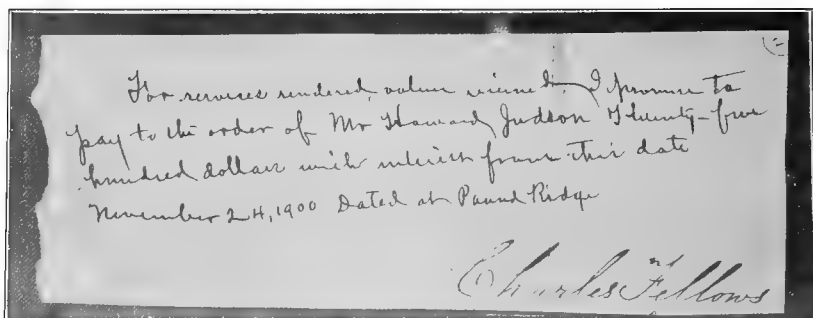 For services rendered, value received, I promise to
pay to the order of Mr Howard Judson Twenty-five
hundred dollars with interest from this date
November 24, 1900 Dated at Pound Ridge
Charles Fellows